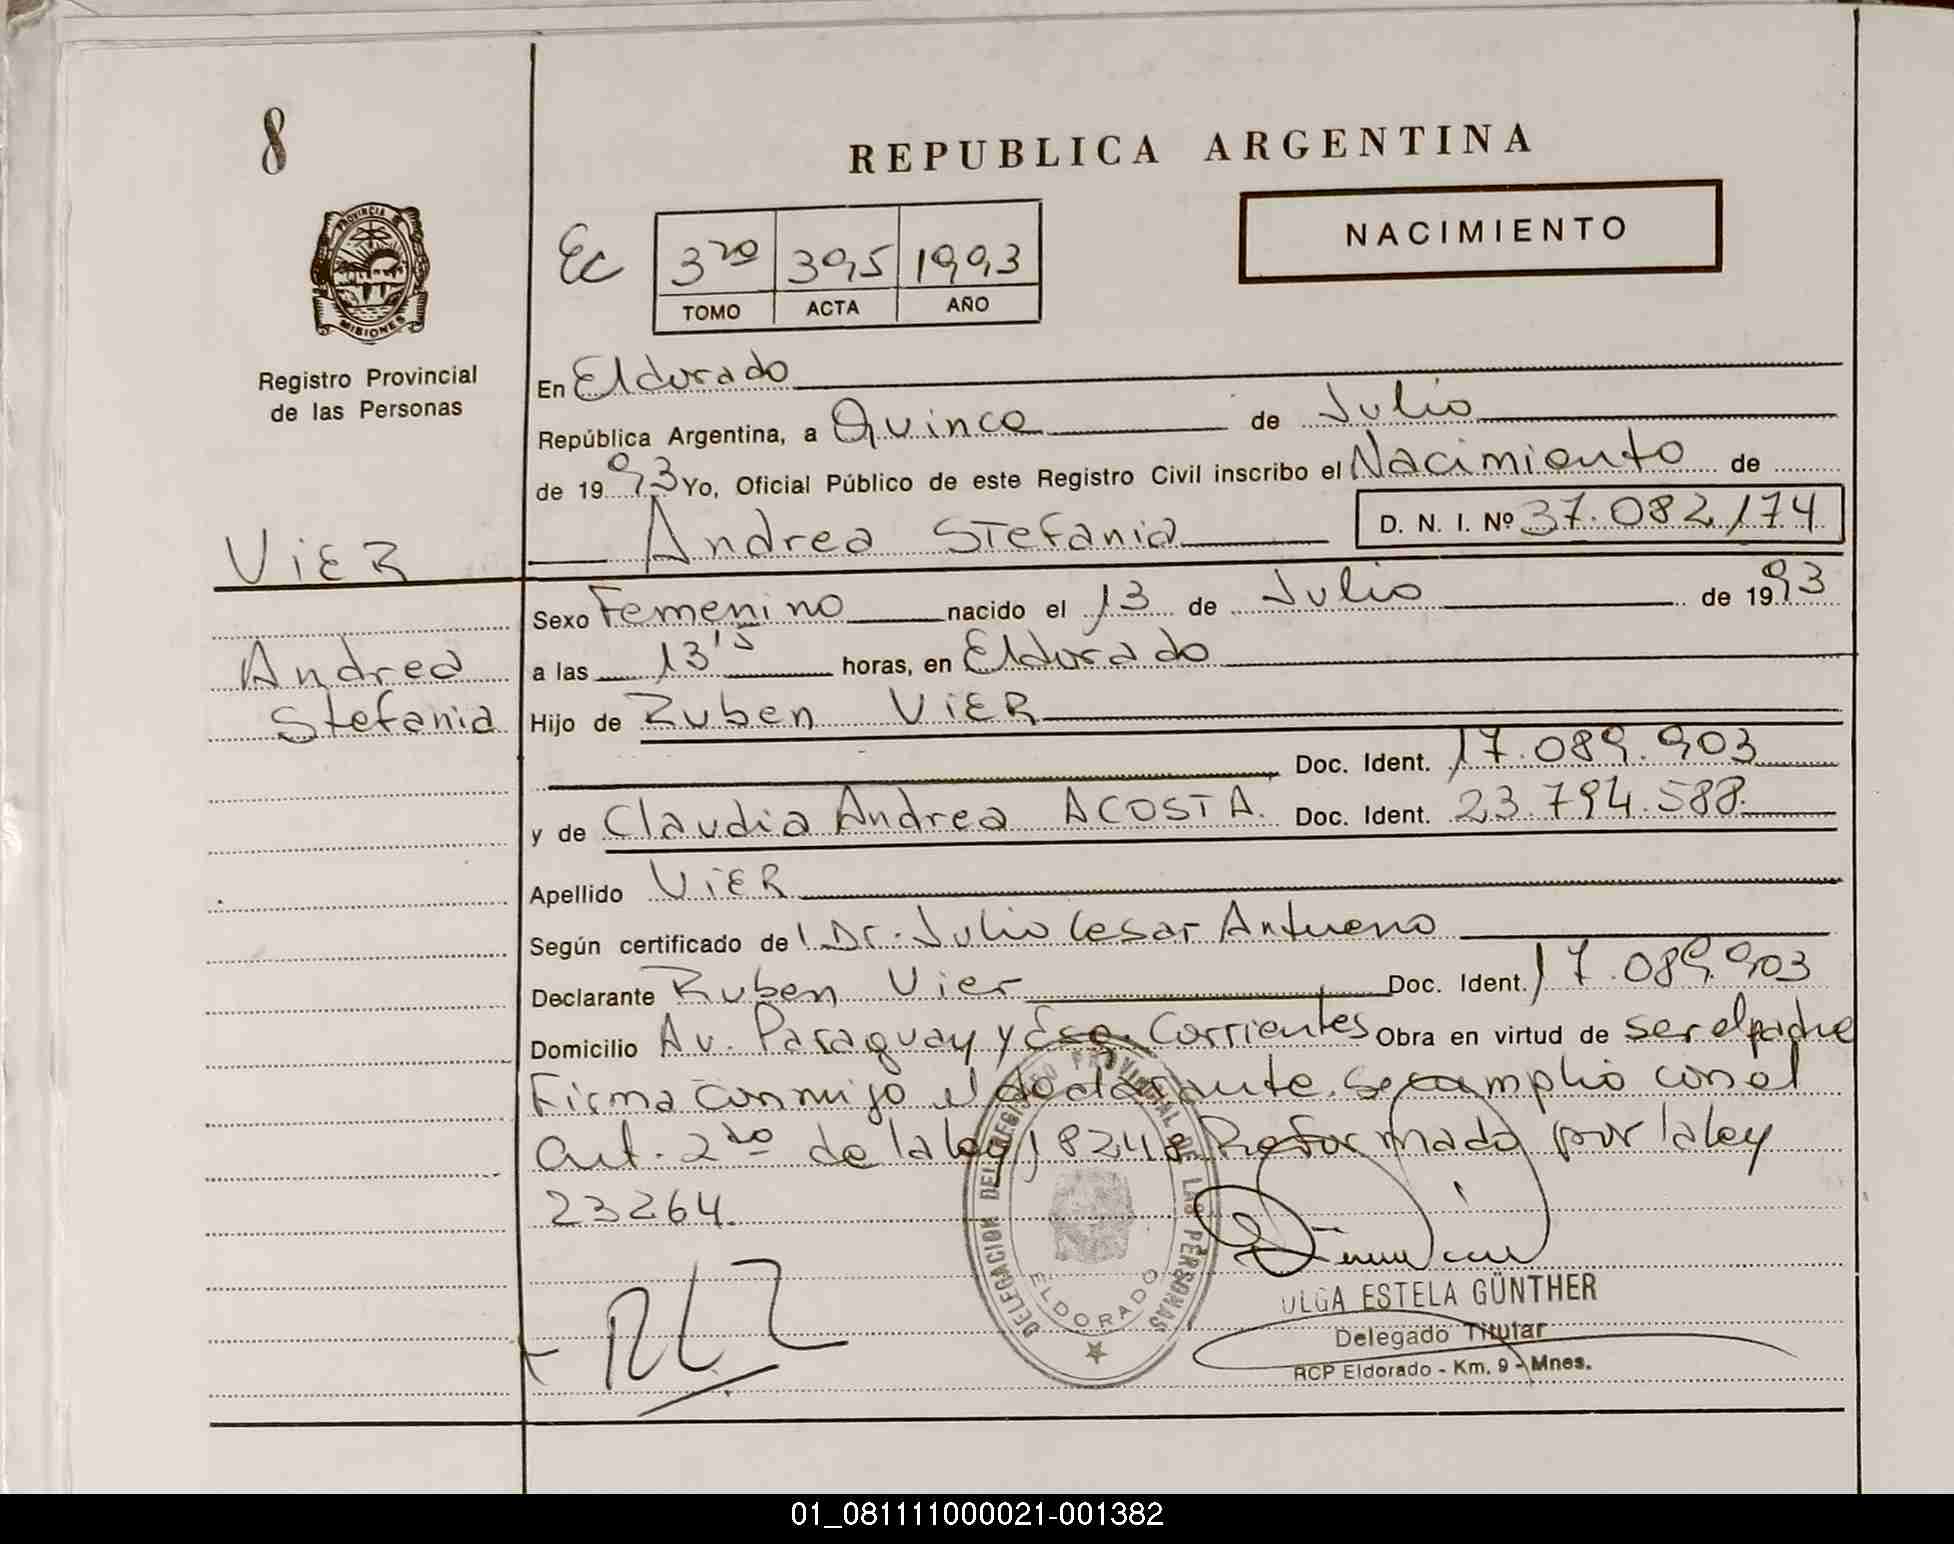 8
REPUBLICA ARGENTINA
PROVINCIA DE
MISIONES
Registro Provincial
de las Personas
Ec
3ro 395 1993
TOMO ACTA AÑO
NACIMIENTO
En Eldorado
República Argentina, a Quince de Julio
de 1993 Yo, Oficial Público de este Registro Civil inscribo el Nacimiento de
Andrea Stefania D. N. I. Nº 37.082.174
VIER
Andrea
Stefania
Sexo Femenino nacido el 13 de Julio de 1993
a las 13'5 horas, en Eldorado
Hijo de Ruben VIER
Doc. Ident. 17.089.903
y de Claudia Andrea ACOSTA. Doc. Ident. 23.794.588.
Apellido VIER
Según certificado del Dr. Julio Cesar Antueno
Declarante Ruben Vier Doc. Ident. 17.089.903
Domicilio Av. Paraguay y Esq. Corrientes Obra en virtud de ser el padre
Firma conmigo el declarante. Se cumplió con el
Art. 2do de la ley 18248 Reformado por la ley
23264.
DELEGACION DEL REGISTRO PROVINCIAL DE LAS PERSONAS
ELDORADO
OLGA ESTELA GÜNTHER
Delegado Titular
RCP Eldorado - Km. 9 - Mnes.
01_081111000021-001382